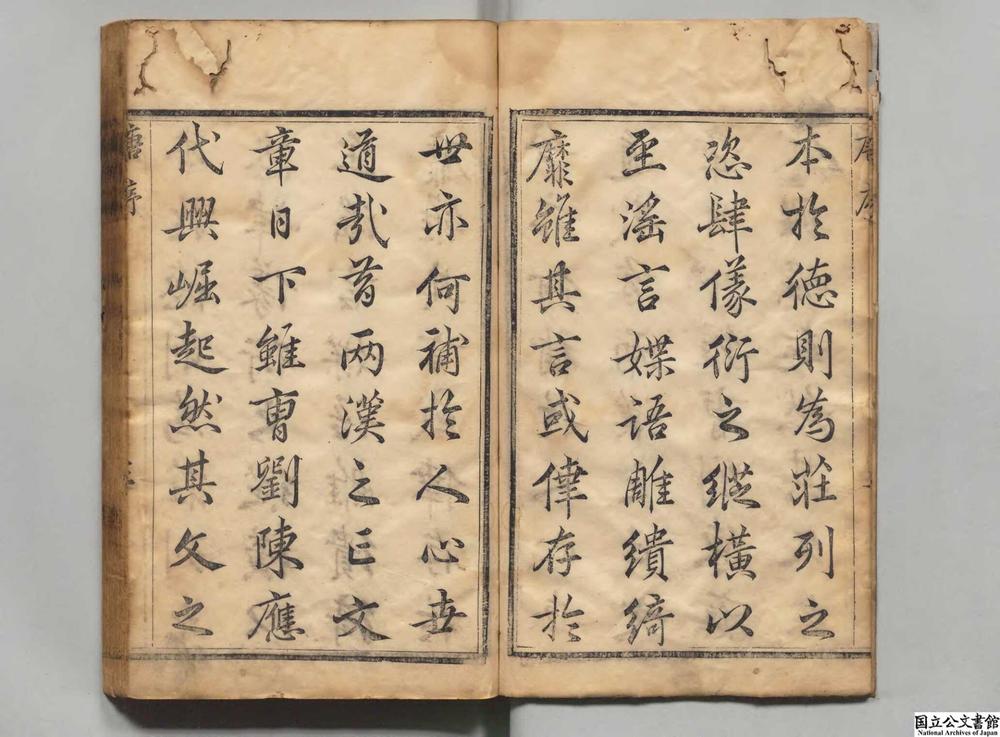 本於德則為莊列之
恣肆儀衍之縱橫以
至滛言媟語雕繢綺
靡雖其言或倖存於
世亦何補於人心世
道哉昔兩漢之亡文
章日下雖曹劉陳應
代興崛起然其文之
唐序
国立公文書館
National Archives of Japan